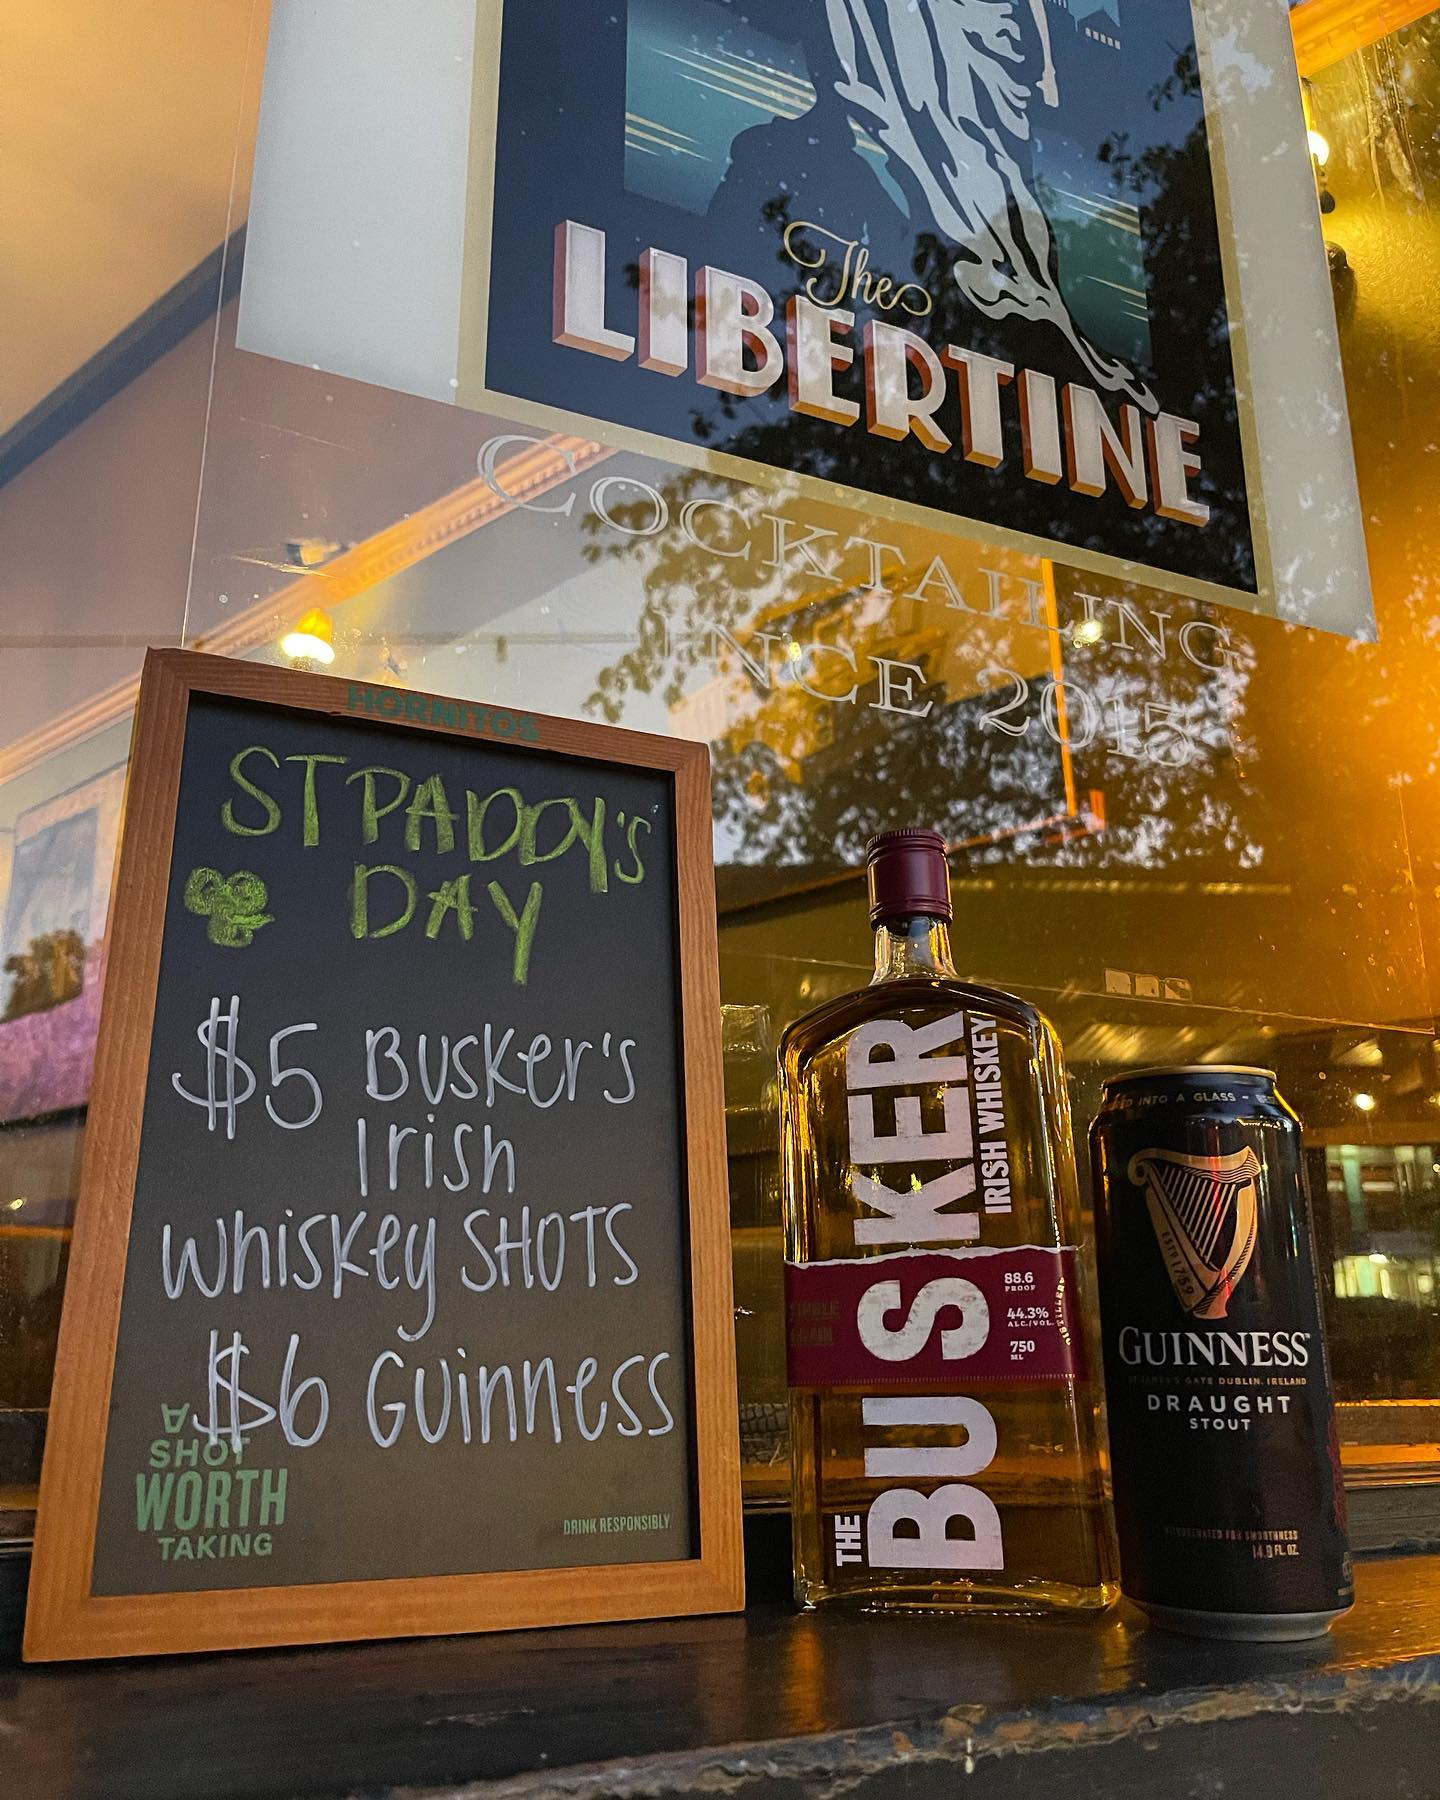 The
LIBERTINE
COCKTAILING
INCE 2015
HORNITOS
ST PADDY'S
DAY
$5 Busker's
Irish
Whiskey SHOTS
$6 Guinness
A
SHOT
WORTH
TAKING
DRINK RESPONSIBLY
THE
BUSKER
IRISH WHISKEY
SINGLE
GRAIN
88.6
PROOF
44.3%
ALC./VOL.
750
ML
INTO A GLASS - BEST
ESTD 1759
GUINNESS
ST JAMES'S GATE DUBLIN, IRELAND
DRAUGHT
STOUT
14.9 FL. OZ.